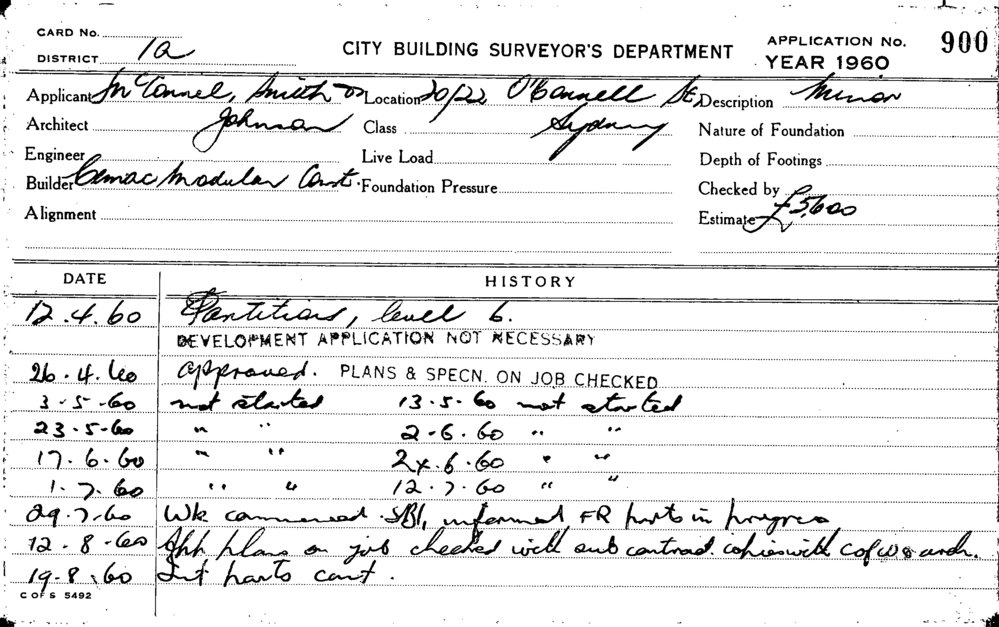 CARD No.
DISTRICT 1a
CITY BUILDING SURVEYOR'S DEPARTMENT
APPLICATION No. 900
YEAR 1960
Applicant McConnel, Smith & Location 20/22 O'Connell St, Description Minor
Architect Johnson Class Sydney Nature of Foundation
Engineer Live Load Depth of Footings
Builder Cemac Modular Const. Foundation Pressure Checked by
Alignment Estimate £5,600
DATE HISTORY
12.4.60 Partitions, level 6.
DEVELOPMENT APPLICATION NOT NECESSARY
26.4.60 approved. PLANS & SPECN. ON JOB CHECKED
3-5-60 not started 13-5-60 not started
23-5-60 " " 2-6.60 " "
17.6.60 " " 24.6.60 " "
1.7.60 " " 12.7.60 " "
29.7.60 Wk commenced. SBI, informed, FR parts in progress
12-8-60 App plans on job checked with sub contract copies with C of W & arch.
19-8.60 Int parts cont.
C OF S 5492